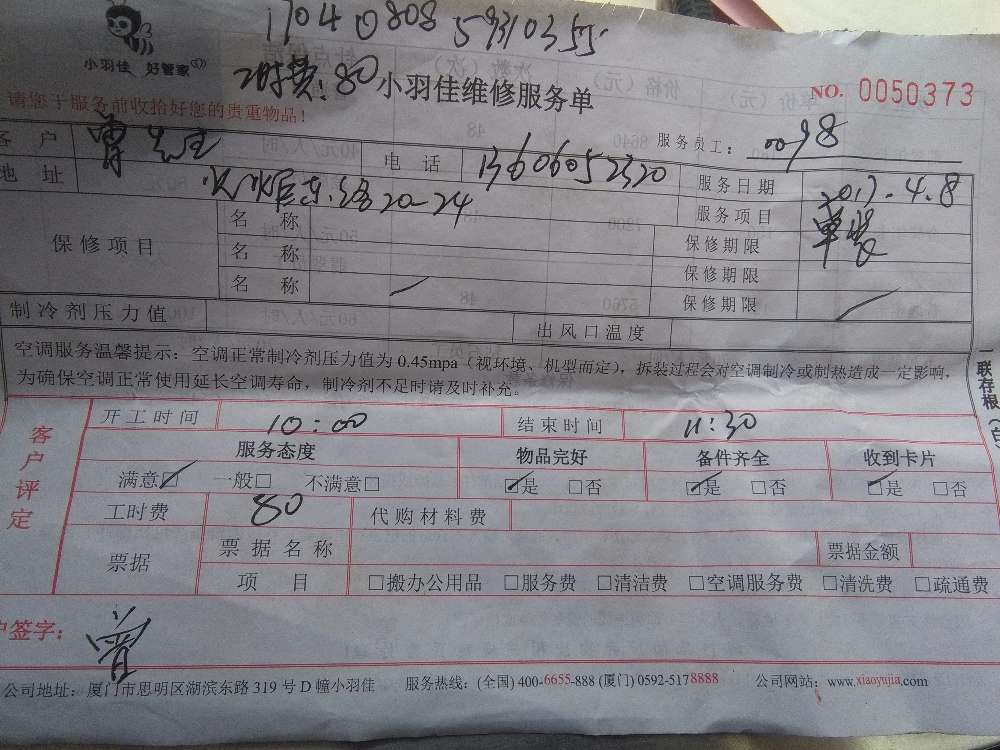 17040808 59310355
小羽佳 好管家
费:80
小羽佳维修服务单
NO. 0050373
请您于服务前收拾好您的贵重物品!
服务员工: 0098
客户 先生 电话 13606052320 服务日期 2017.4.8
地址 20-24 服务项目
保修项目 名称 保修期限
名称 保修期限
名称 保修期限
制冷剂压力值 出风口温度
空调服务温馨提示:空调正常制冷剂压力值为0.45mpa(视环境、机型而定),拆装过程会对空调制冷或制热造成一定影响,
为确保空调正常使用延长空调寿命,制冷剂不足时请及时补充。
一联存根(白
客户评定
开工时间 10:00 结束时间 11:30
服务态度 物品完好 备件齐全 收到卡片
满意☑ 一般□ 不满意□ ☑是 □否 ☑是 □否 ☑是 □否
工时费 80 代购材料费
票据 票据名称 票据金额
项目 □搬办公用品 □服务费 □清洁费 □空调服务费 □清洗费 □疏通费
户签字:
公司地址:厦门市思明区湖滨东路319号D幢小羽佳 服务热线:(全国)400-6655-888(厦门)0592-5178888 公司网站:www.xiaoyujia.com